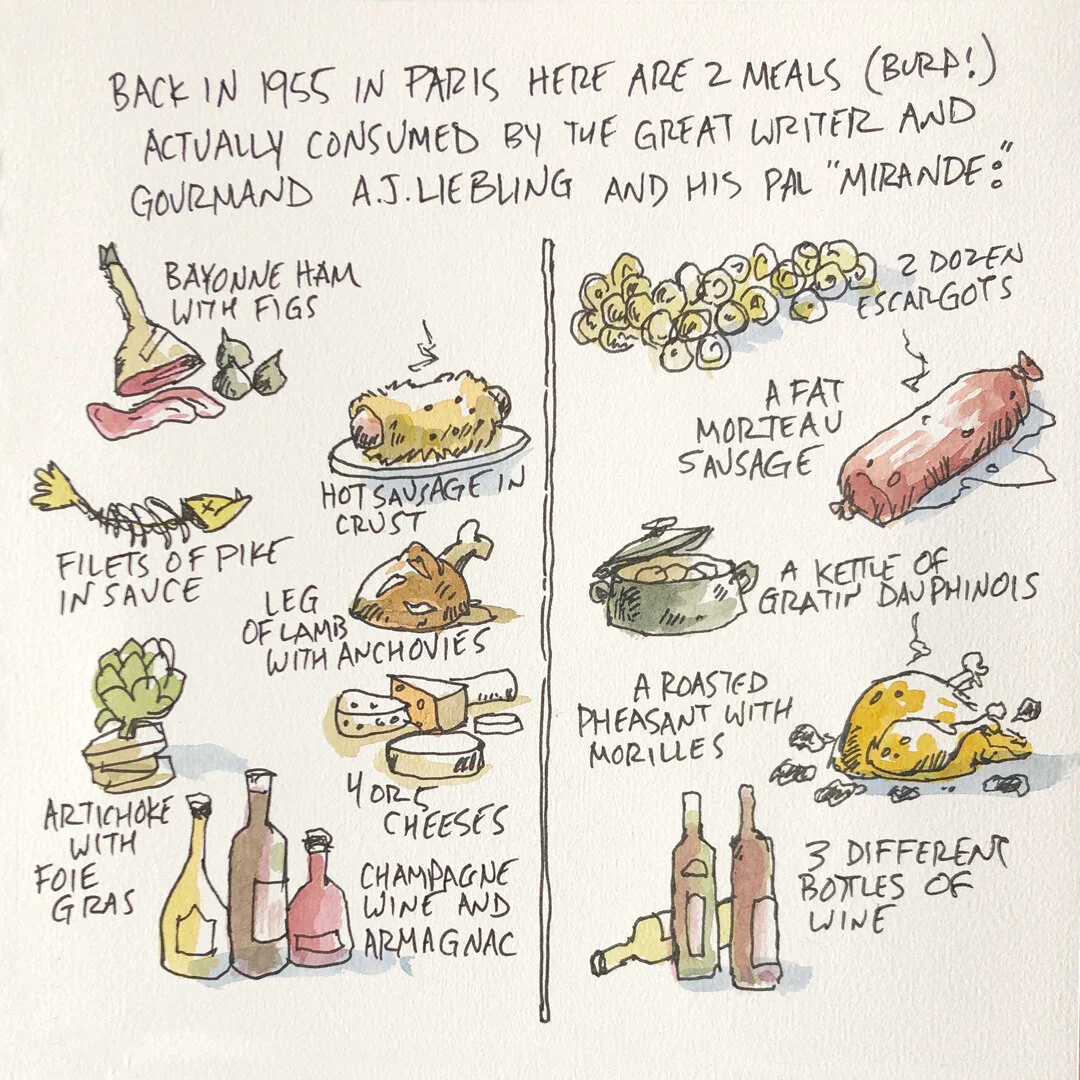 BACK IN 1955 IN PARIS HERE ARE 2 MEALS (BURP!)
ACTUALLY CONSUMED BY THE GREAT WRITER AND
GOURMAND A.J. LIEBLING AND HIS PAL "MIRANDE:"
BAYONNE HAM
WITH FIGS
HOT SAUSAGE IN
CRUST
FILETS OF PIKE
IN SAUCE
LEG
OF LAMB
WITH ANCHOVIES
ARTICHOKE
WITH
FOIE
GRAS
4 OR 5
CHEESES
CHAMPAGNE
WINE AND
ARMAGNAC
2 DOZEN
ESCARGOTS
A FAT
MORTEAU
SAUSAGE
A KETTLE OF
GRATIN DAUPHINOIS
A ROASTED
PHEASANT WITH
MORILLES
3 DIFFERENT
BOTTLES OF
WINE